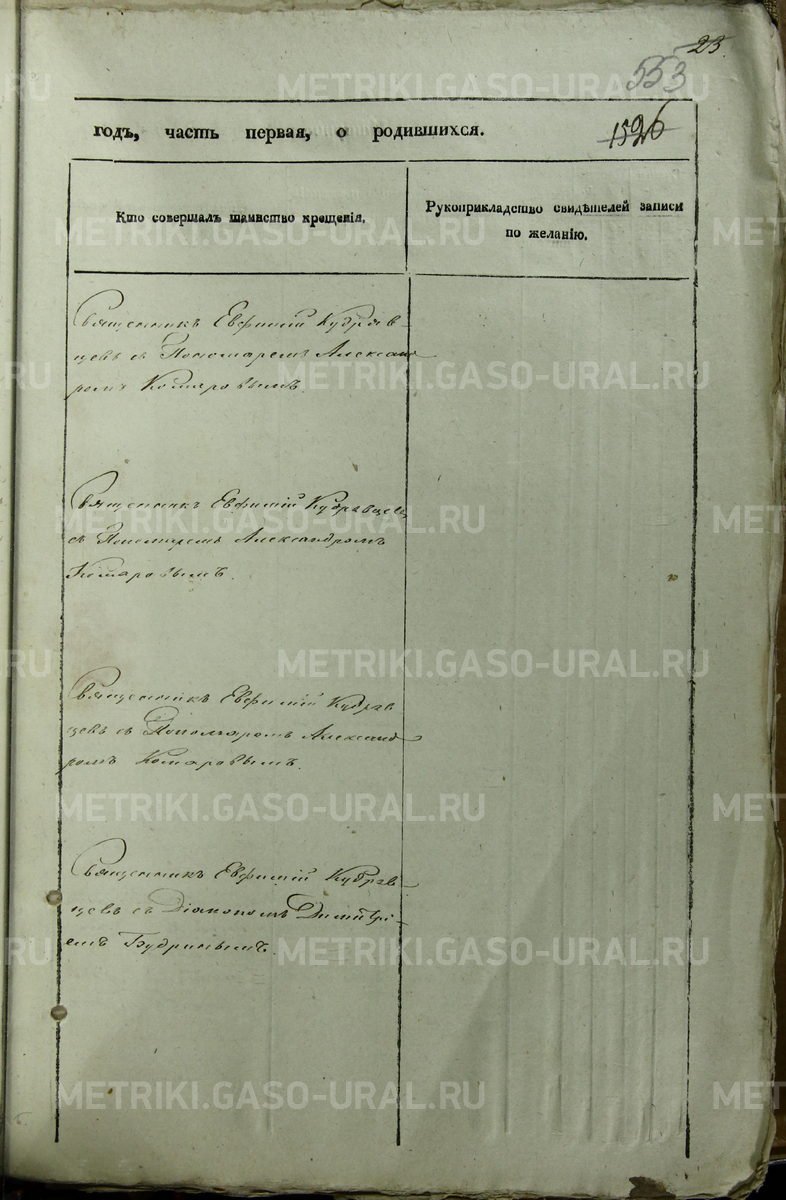 23
553
годъ, часть первая, о родившихся.
1526
Кто совершалъ таинство крещенія.
Рукоприкладство свидѣтелей записи
по желанію.
Священникъ Евфимій Кудряв-
цевъ съ Пономаремъ Александ
ромъ Комаровымъ.
Священникъ Евфимій Кудрявцевъ
съ Пономаремъ Александромъ
Комаровымъ.
Священникъ Евфимій Кудряв
цевъ съ Пономаромъ Александ
ромъ Комаровымъ.
Священникъ Евфимій Кудряв-
цевъ съ Діакономъ Димитрі-
емъ Будринымъ.
METRIKI.GASO-URAL.RU